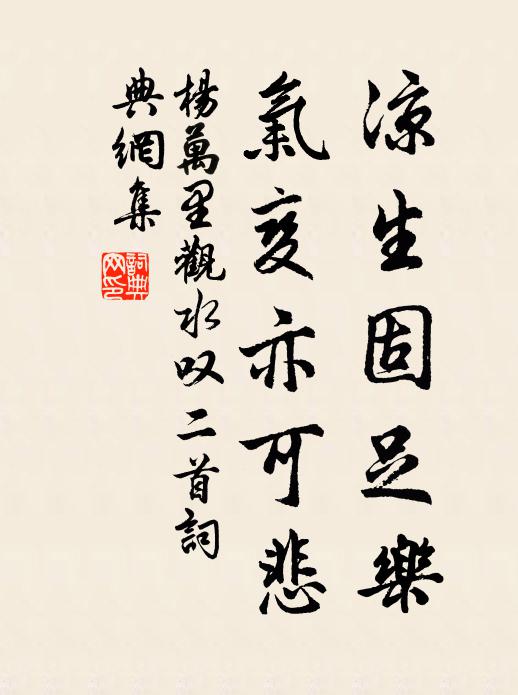 凉生固足樂
氣变亦可悲
楊萬里觀水叹二首詞
典網集
詞典
网印